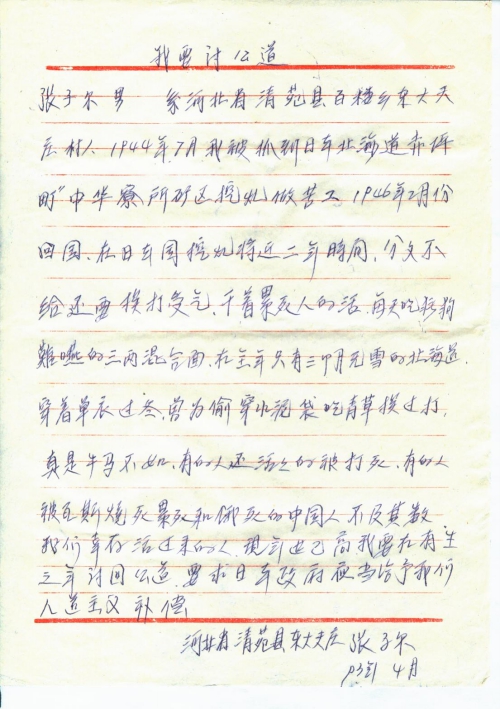 我要讨公道
张子尔 男 家河北省清苑县百楼乡东大夫
庄村人 1944年7月我被抓到日本北海道赤平
町"中华寮"所矿区挖煤做苦工 1946年2月份
回国、在日本国挖煤将近二年時间，分文不
给还要挨打受气、干着累死人的活、每天吃猪狗
難嚥的三两混合面、在全年只有三个月无雪的北海道、
穿着单衣过冬、曾为偷穿水泥袋吃青草挨过打，
真是牛马不如、有的人还活活的被打死、有的人
被瓦斯烧死累死和饿死的中国人不及其数
我们幸存活过来的人、现年迈已高我要在有生
之年讨回公道、要求日本政府应当给予我们
人道主义补偿
河北省清苑县东大夫庄 张子尔
93年 4月